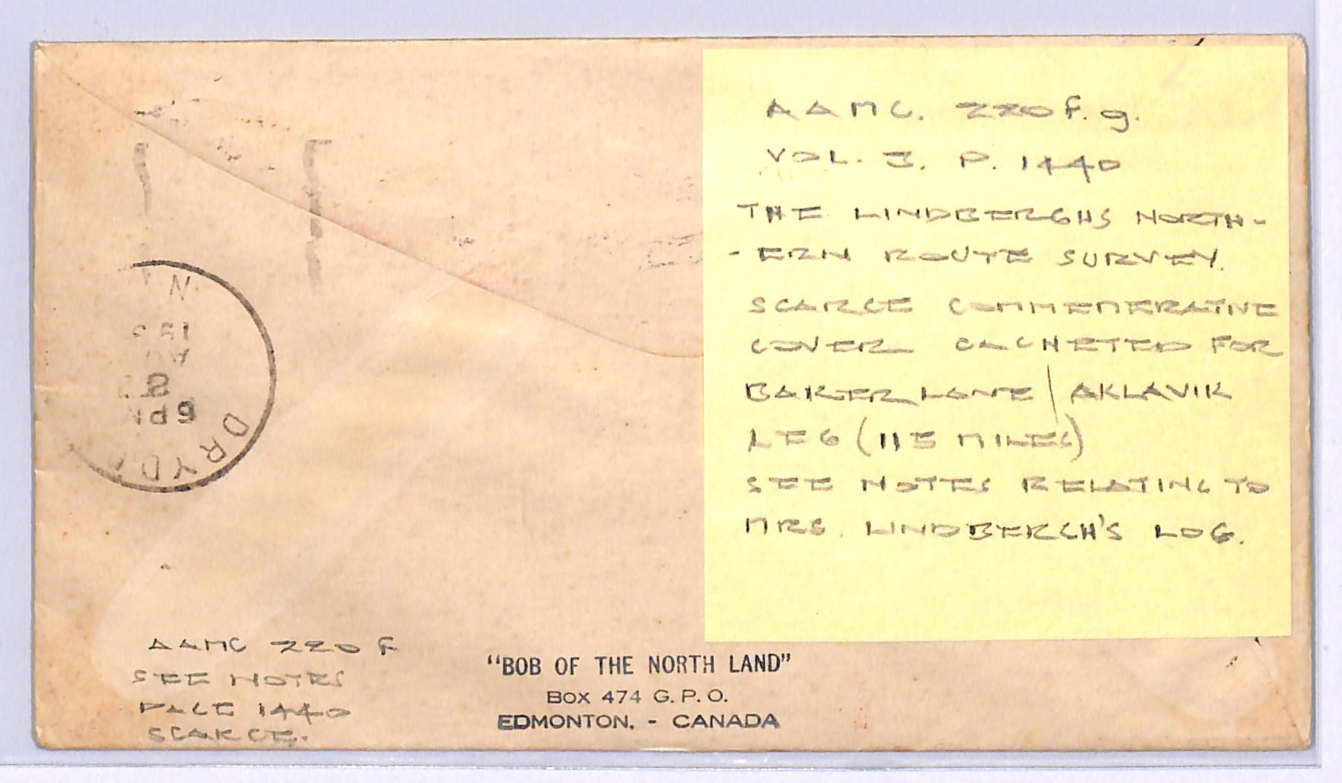 AAMC. 220 f. g.
VOL. 3. P. 1440
THE LINDBERGHS NORTH-
-ERN ROUTE SURVEY.
SCARCE COMMEMERATIVE
COVER CACHETED FOR
BAKER LANE / AKLAVIK
LEG (115 MILES)
SEE NOTES RELATING TO
MRS. LINDBERGH'S LOG.
6PM
DRYD
AAMC 220 f
SEE NOTES
PAGE 1440
SCARCE.
"BOB OF THE NORTH LAND"
Box 474 G. P. O.
EDMONTON, - CANADA